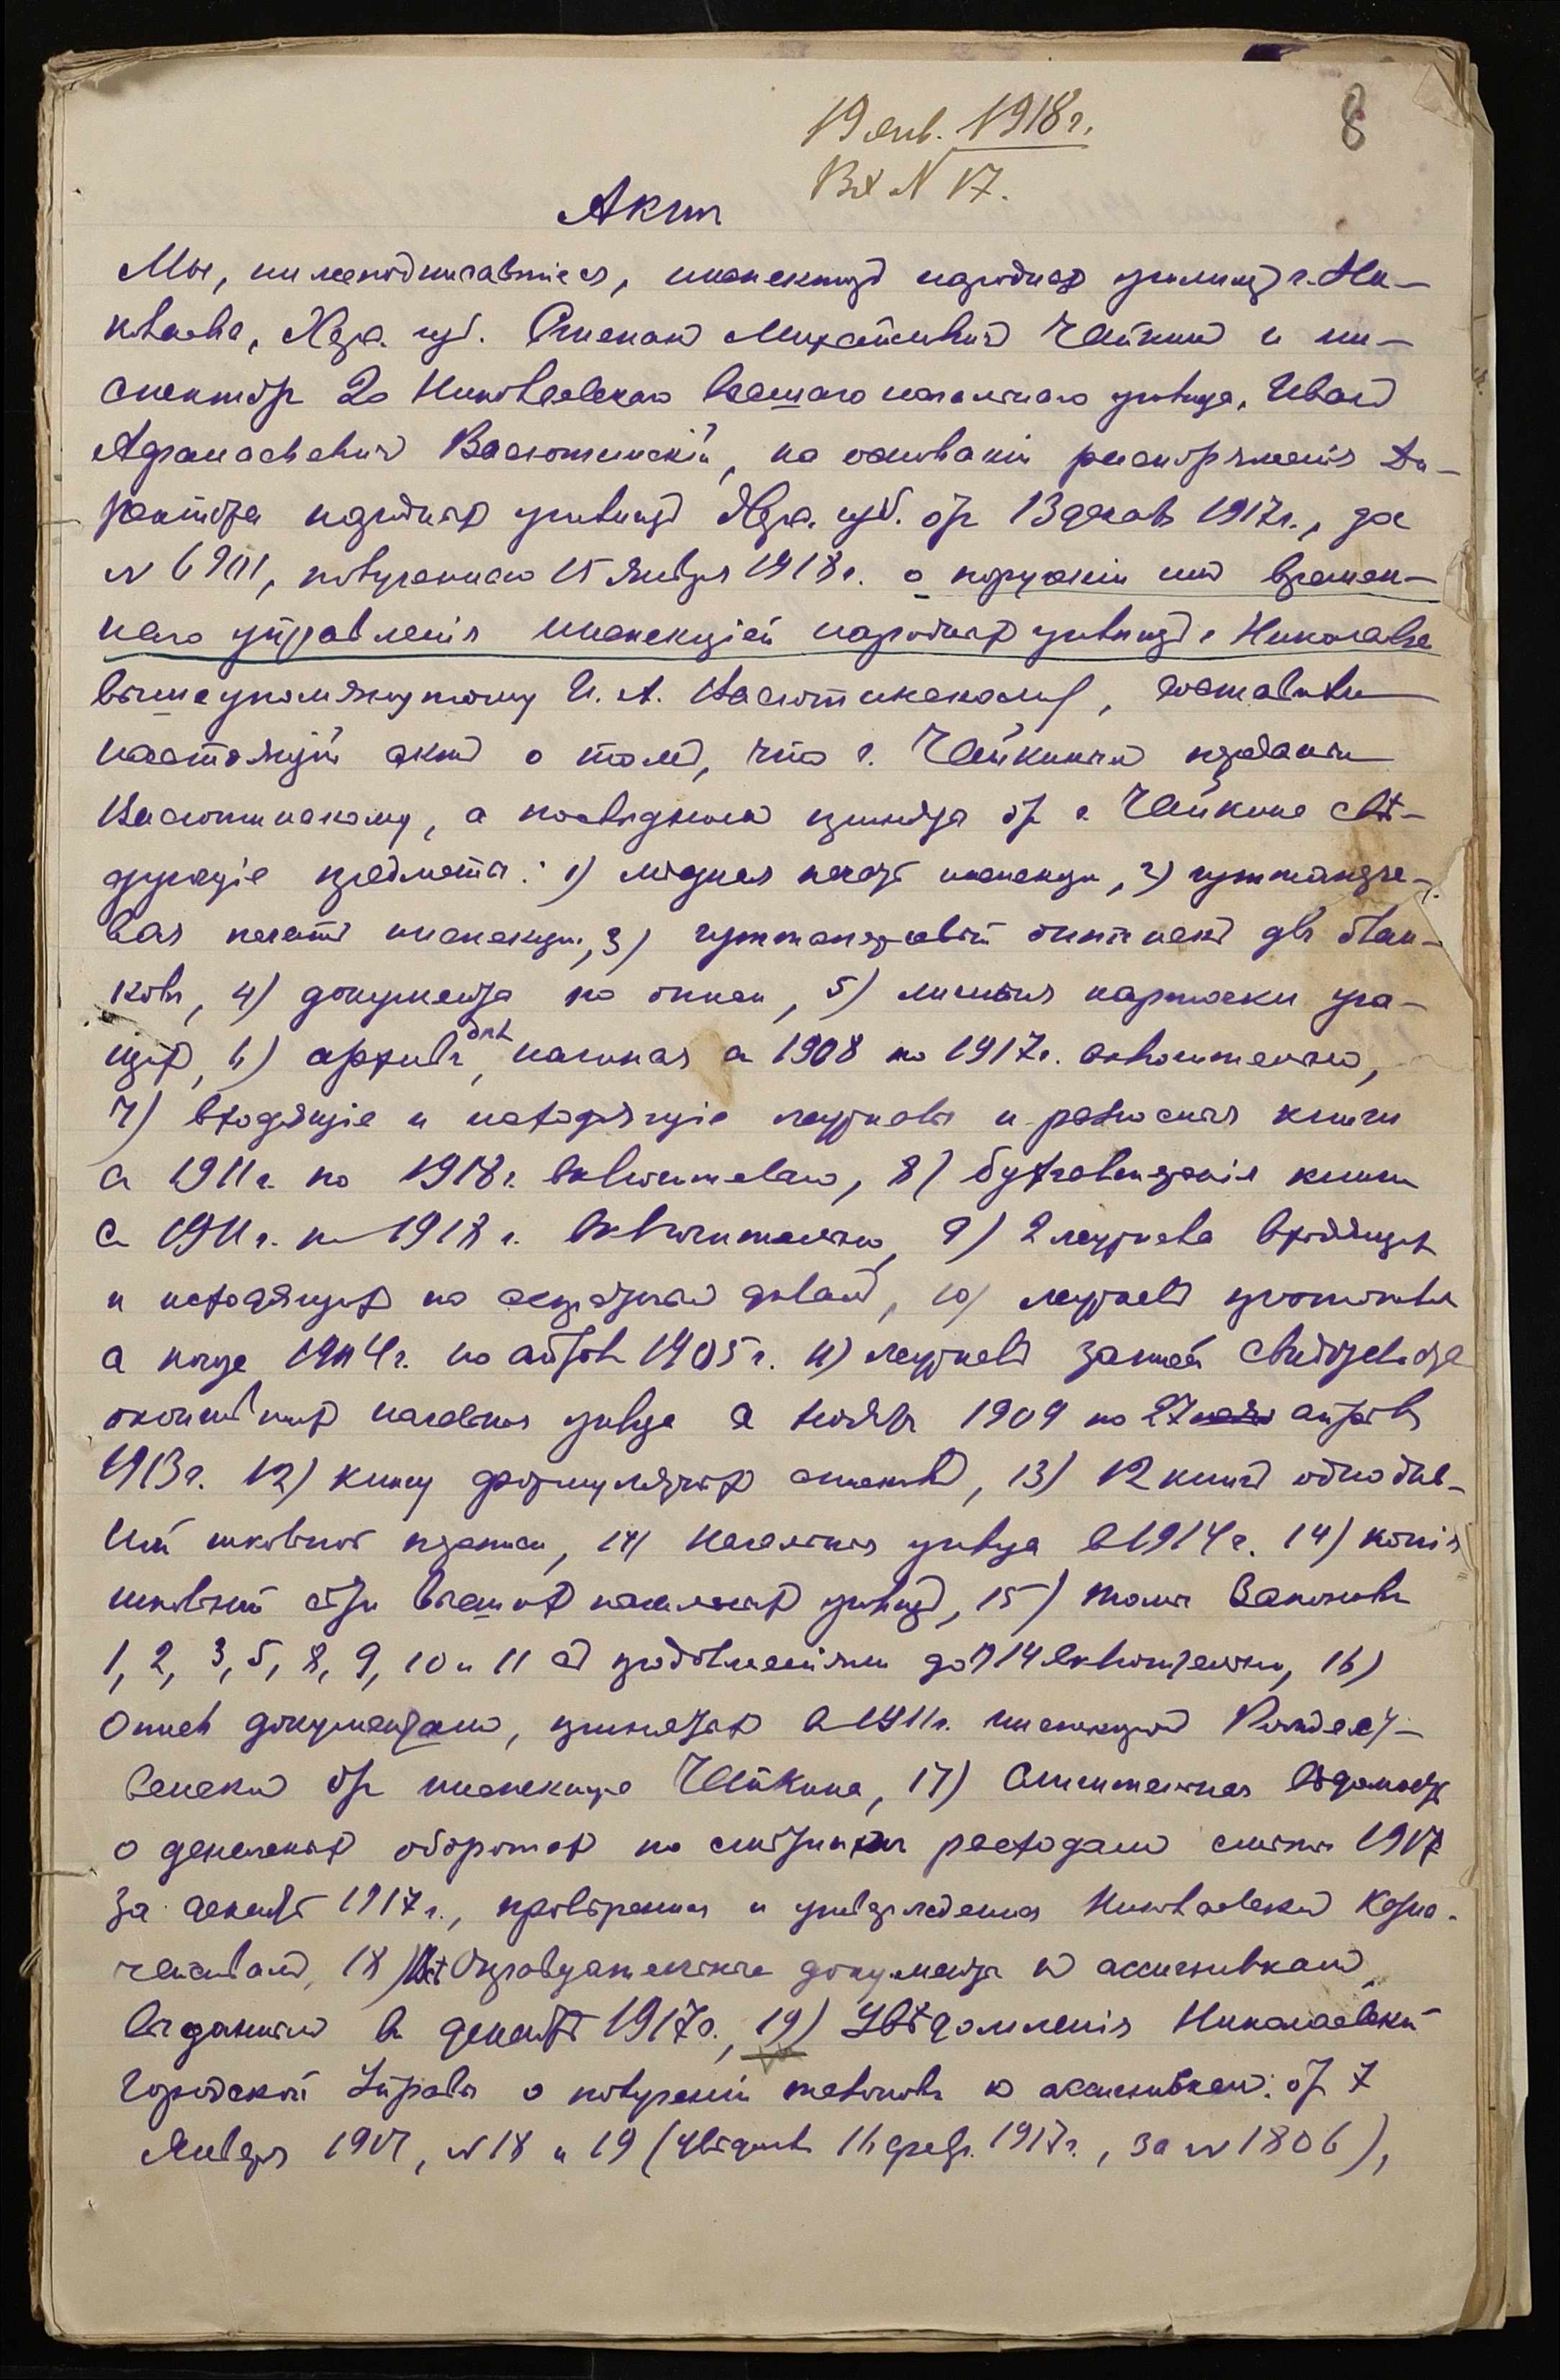 19 янв. 1918 г.
8
Вх N 17.
Актъ
Мы, нижеподписавшіеся, инспекторъ народныхъ училищъ г. Ни-
колаева, Херс. губ. Степанъ Михайловичъ Чайкинъ и ин-
спекторъ 2о Николаевскаго Высшаго начальнаго училища, Иванъ
Афанасьевичъ Васютинскій, на основаніи распоряженія Ди-
ректора народныхъ училищъ Херс. губ. отъ 13 декаб 1917 г., за
N 6901, полученнаго 15 января 1918 г. о порученіи имъ времен-
наго управленія инспекціей народныхъ училищъ г. Николаева
вышеупомянутому И. А. Васютинскому, составили
настоящій актъ о томъ, что г. Чайкинымъ преданы
Васютинскому, а послѣднимъ приняты отъ г. Чайкина слѣ-
дующіе предметы: 1) мѣдная печать инспекціи, 2) гуттаперче-
вая печать инспекціи, 3) гуттаперчевый оттискъ для блан-
ковъ, 4) документы по описи, 5) личныя карточки уча-
щихъ, 6) архивъ дѣлъ, начиная съ 1908 по 1917 г. включительно,
7) входящіе и исходящіе журналы и разносныя книги
съ 1911 г. по 1918 г. включительно, 8) бухгалтерскія книги
съ 1911 г. по 1918 г. включительно, 9) 2 журнала входящихъ
и исходящихъ по секретнымъ дѣламъ, 10) журналъ
съ 1904 г. по 1905 г. 11) журналъ записи свидѣтельствъ
окончившихъ начальныя училища съ ноября 1909 по 27 апрѣля
1913 г. 12) книгу формулярныхъ списковъ, 13) 12 книгъ одноднев-
ной школьной переписи, 14) начальныя училища въ 1914 г. 14) копіи
школьной сѣти высшихъ начальныхъ училищъ, 15) томы Законовъ
1, 2, 3, 5, 8, 9, 10 и 11 съ продолженіями до 1914 включительно, 16)
Опись документамъ, принятыхъ въ 1911 г. инспекторомъ
отъ инспектора Чайкина, 17) вѣдомость
о денежныхъ оборотахъ по смѣтнымъ расходамъ смѣты 1917
за декабрь 1917 г., провѣренная и утвержденная Николаевскимъ Казна-
чействомъ, 18) Оправдательные документы къ ассигновкамъ,
выданнымъ въ декабрѣ 1917 г., 19) Увѣдомленія Николаевской
Городской Управы о полученіи талоновъ къ ассигновкамъ отъ 7
Января 1917, N 18 и 19 (увѣдомл. 16 февр. 1917 г., за N 1806),